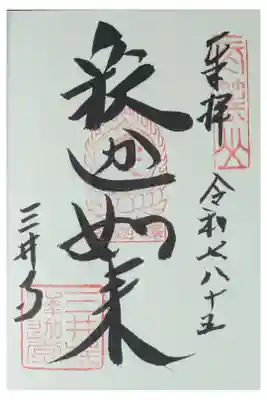 奉拝
令和七八十五
釈迦如来
三井寺
三井寺
釈迦堂